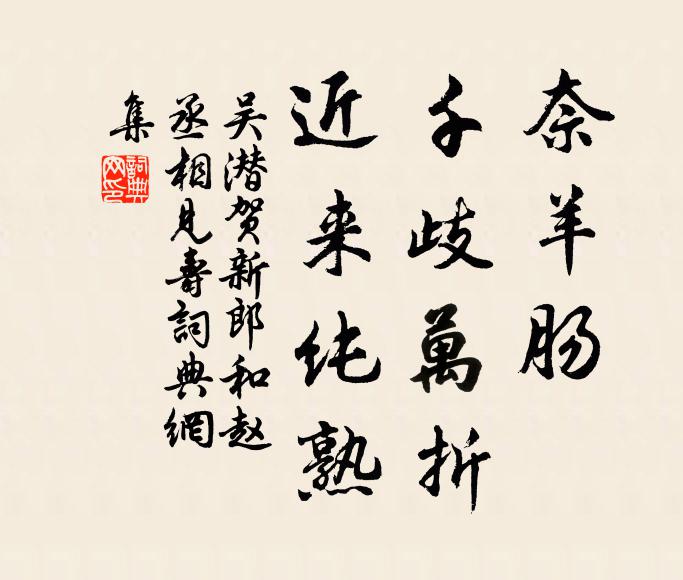 奈羊肠
千歧萬折
近来纯熟
吴潜贺新郎和赵
丞相见壽詞典網
集
詞典
网印